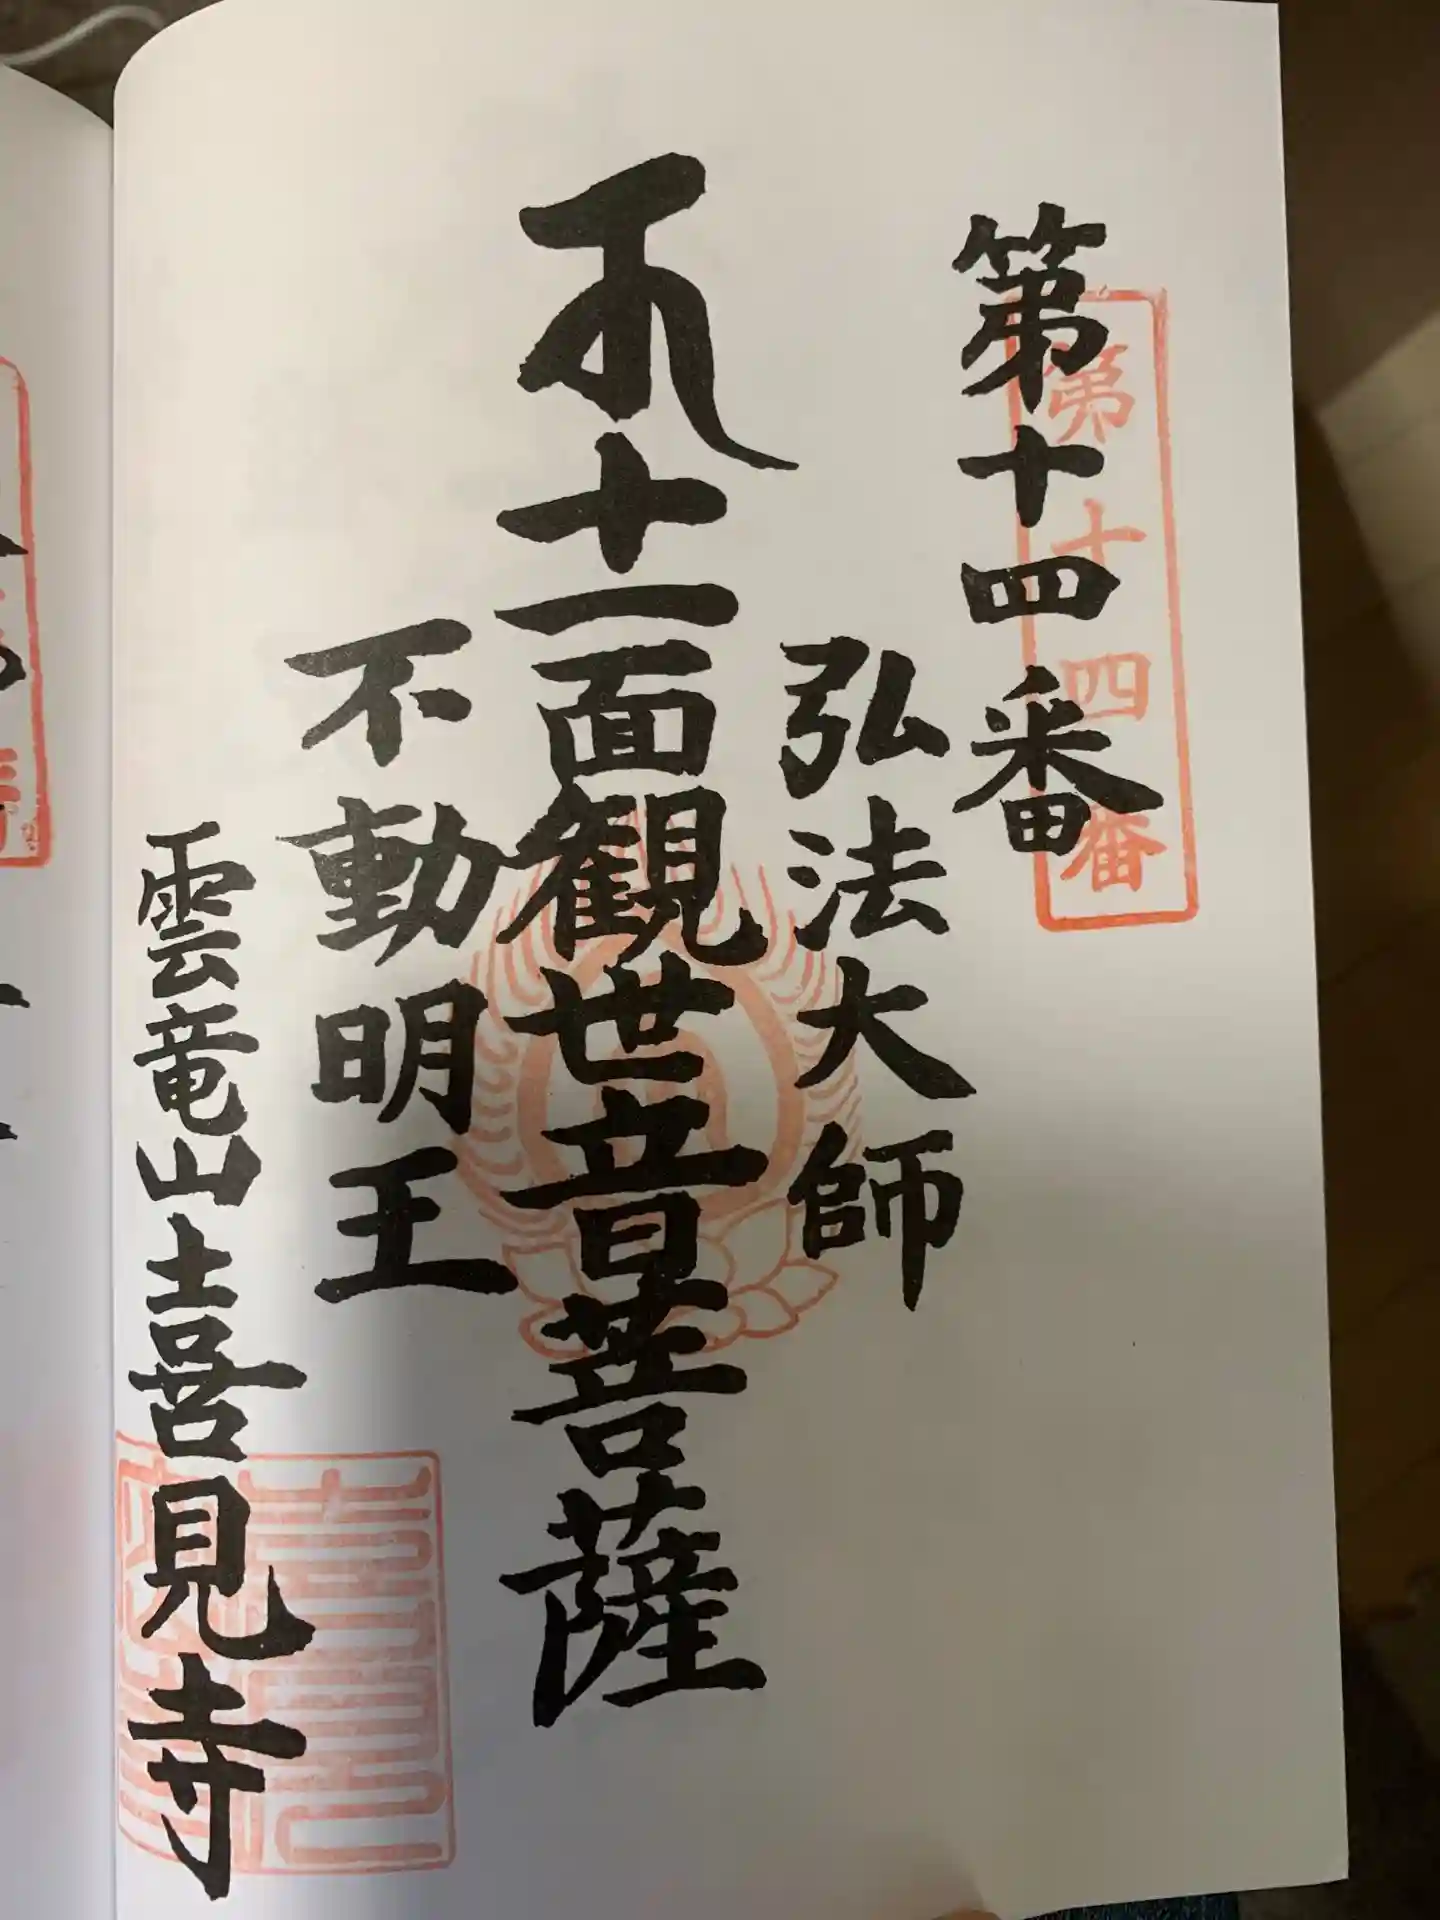 第十四番
第十四番
弘法大師
十一面観世音菩薩
不動明王
雲竜山喜見寺